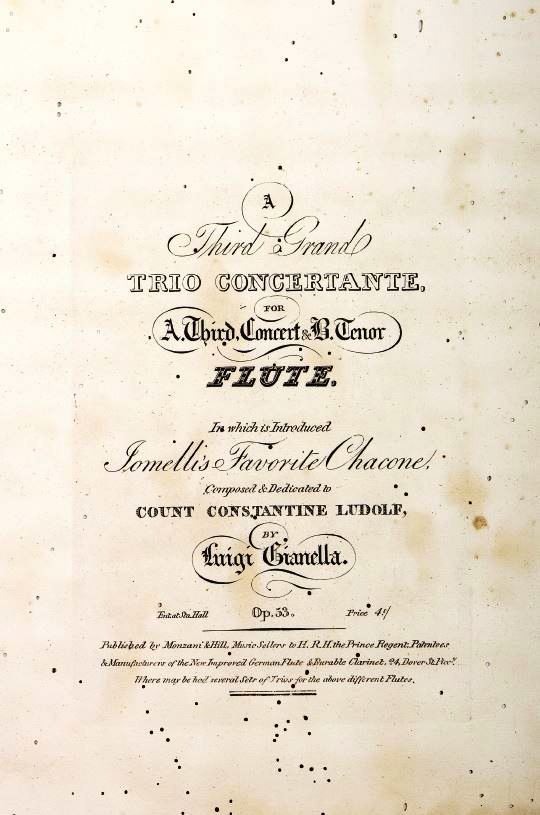 A
Third Grand
TRIO CONCERTANTE,
FOR
A. Third, Concert & B. Tenor
FLUTE.
In which is Introduced
Jomelli's Favorite Chacone,
Composed & Dedicated to
COUNT CONSTANTINE LUDOLF,
BY
Luigi Gianella.
Ent. at Sta. Hall Op. 33. Price 4s/
Published by Monzani & Hill, Music Sellers to H. R. H. the Prince Regent, Patentees
& Manufacturers of the New Improved German Flute & Durable Clarinet, 24, Dover St. Piccy.
Where may be had several Sets of Trios for the above different Flutes.